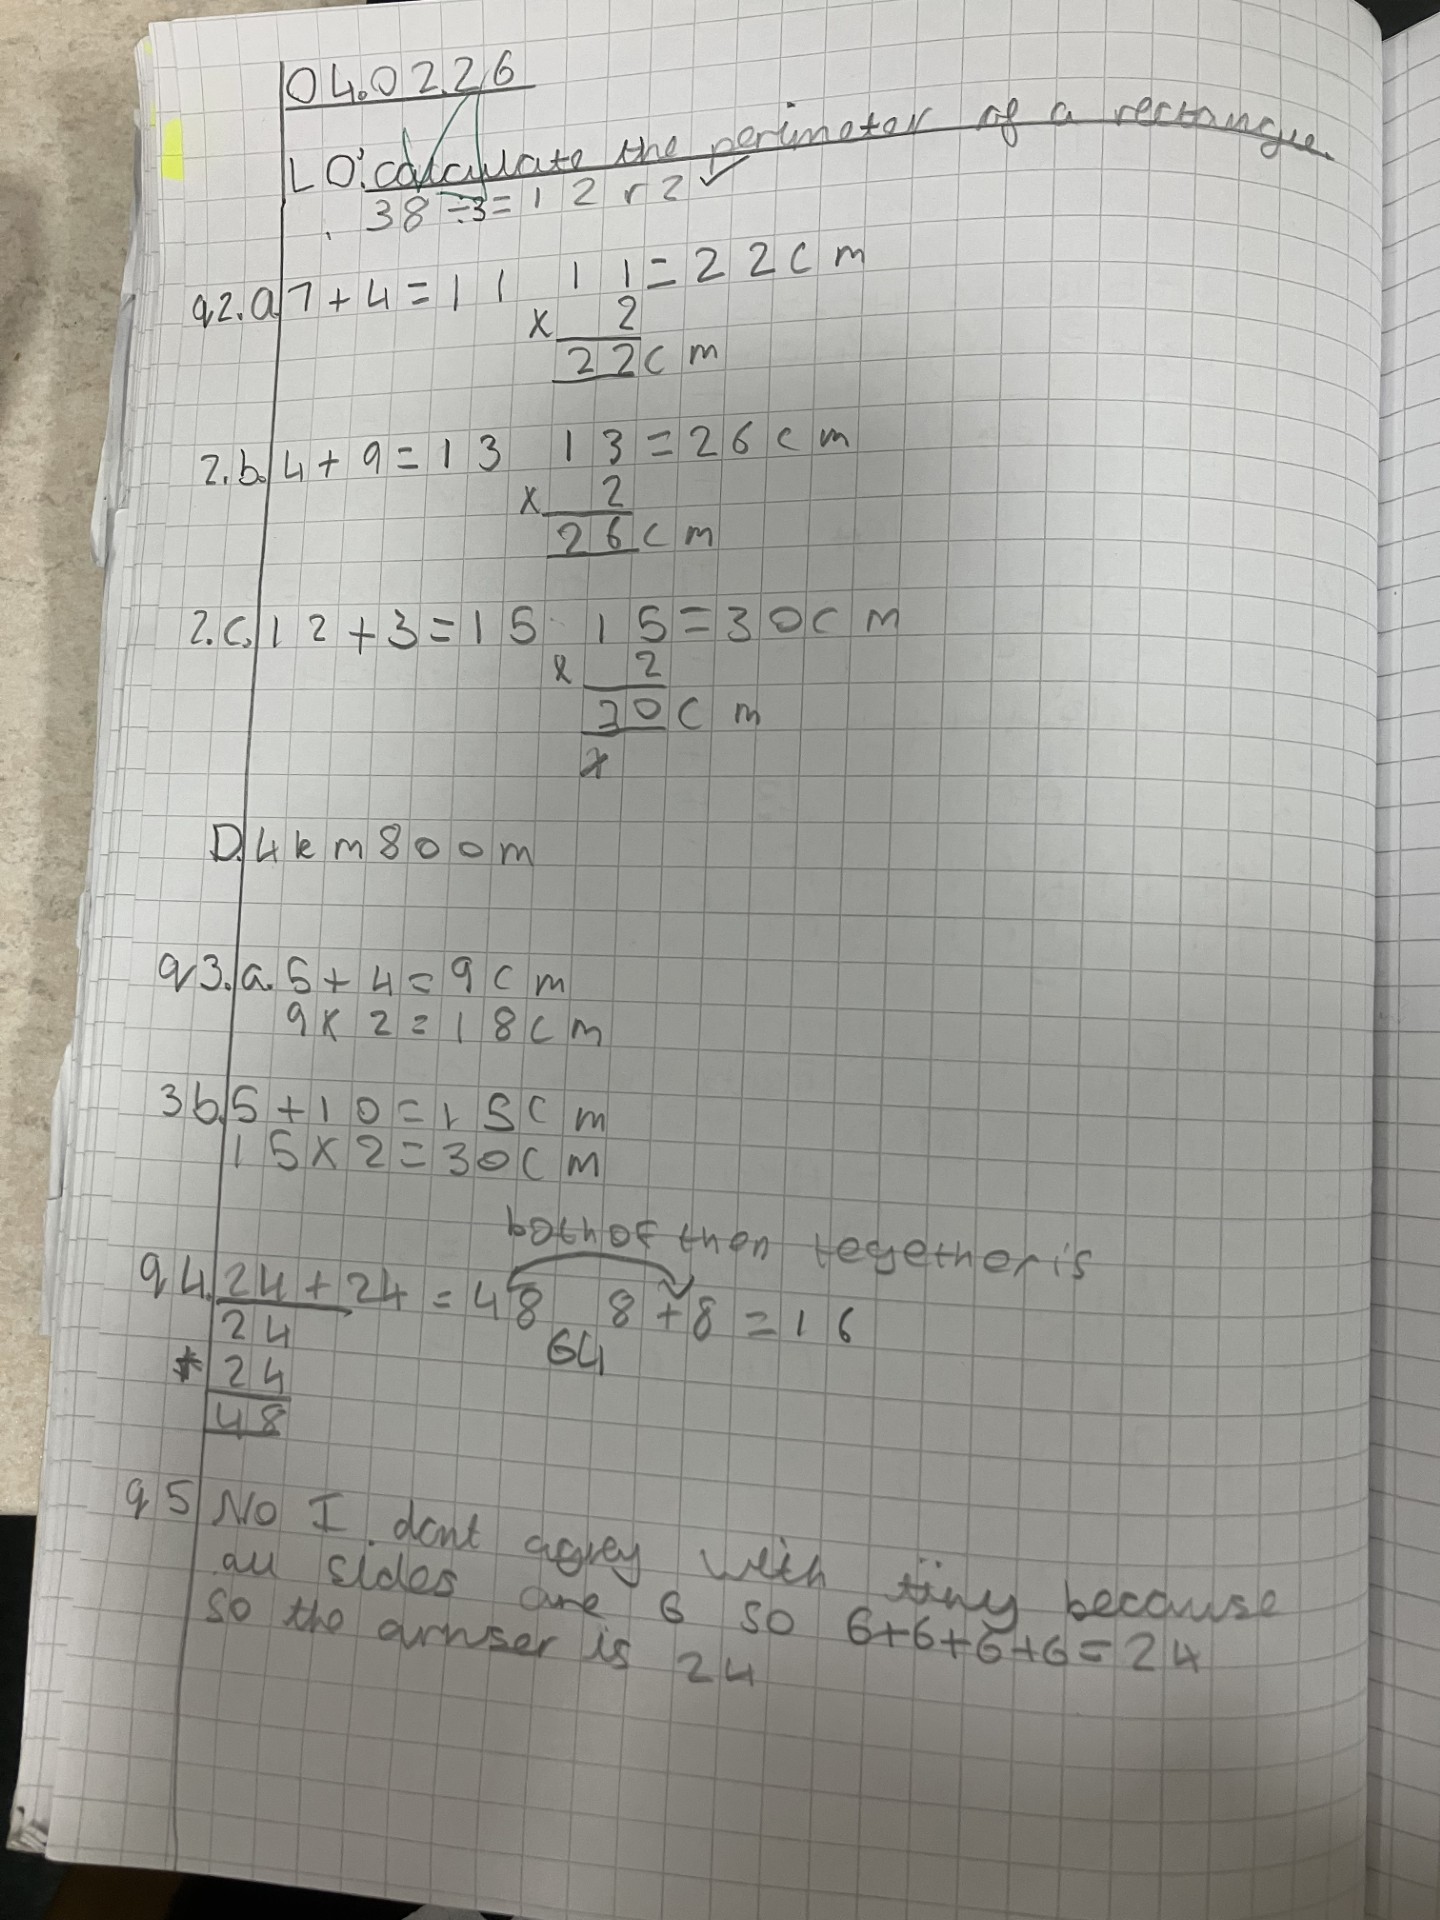 04.02.26
LO: calculate the perimeter of a rectangle.
38÷3=12 r2 ✓
q2.a 7+4=11 11=22cm
x 2
22cm
2.b. 4+9=13 13=26cm
x 2
26cm
2.c. 12+3=15 15=30cm
x 2
30cm
D. 4km800m
q3.a. 5+4=9cm
9x2=18cm
3b. 5+10=15cm
15x2=30cm
both of then tegether is
q4. 24+24=48 8+8=16
64
24
24
48
q5 No I dont agrey with tiny because
all sides are 6 so 6+6+6+6=24
so the arnser is 24